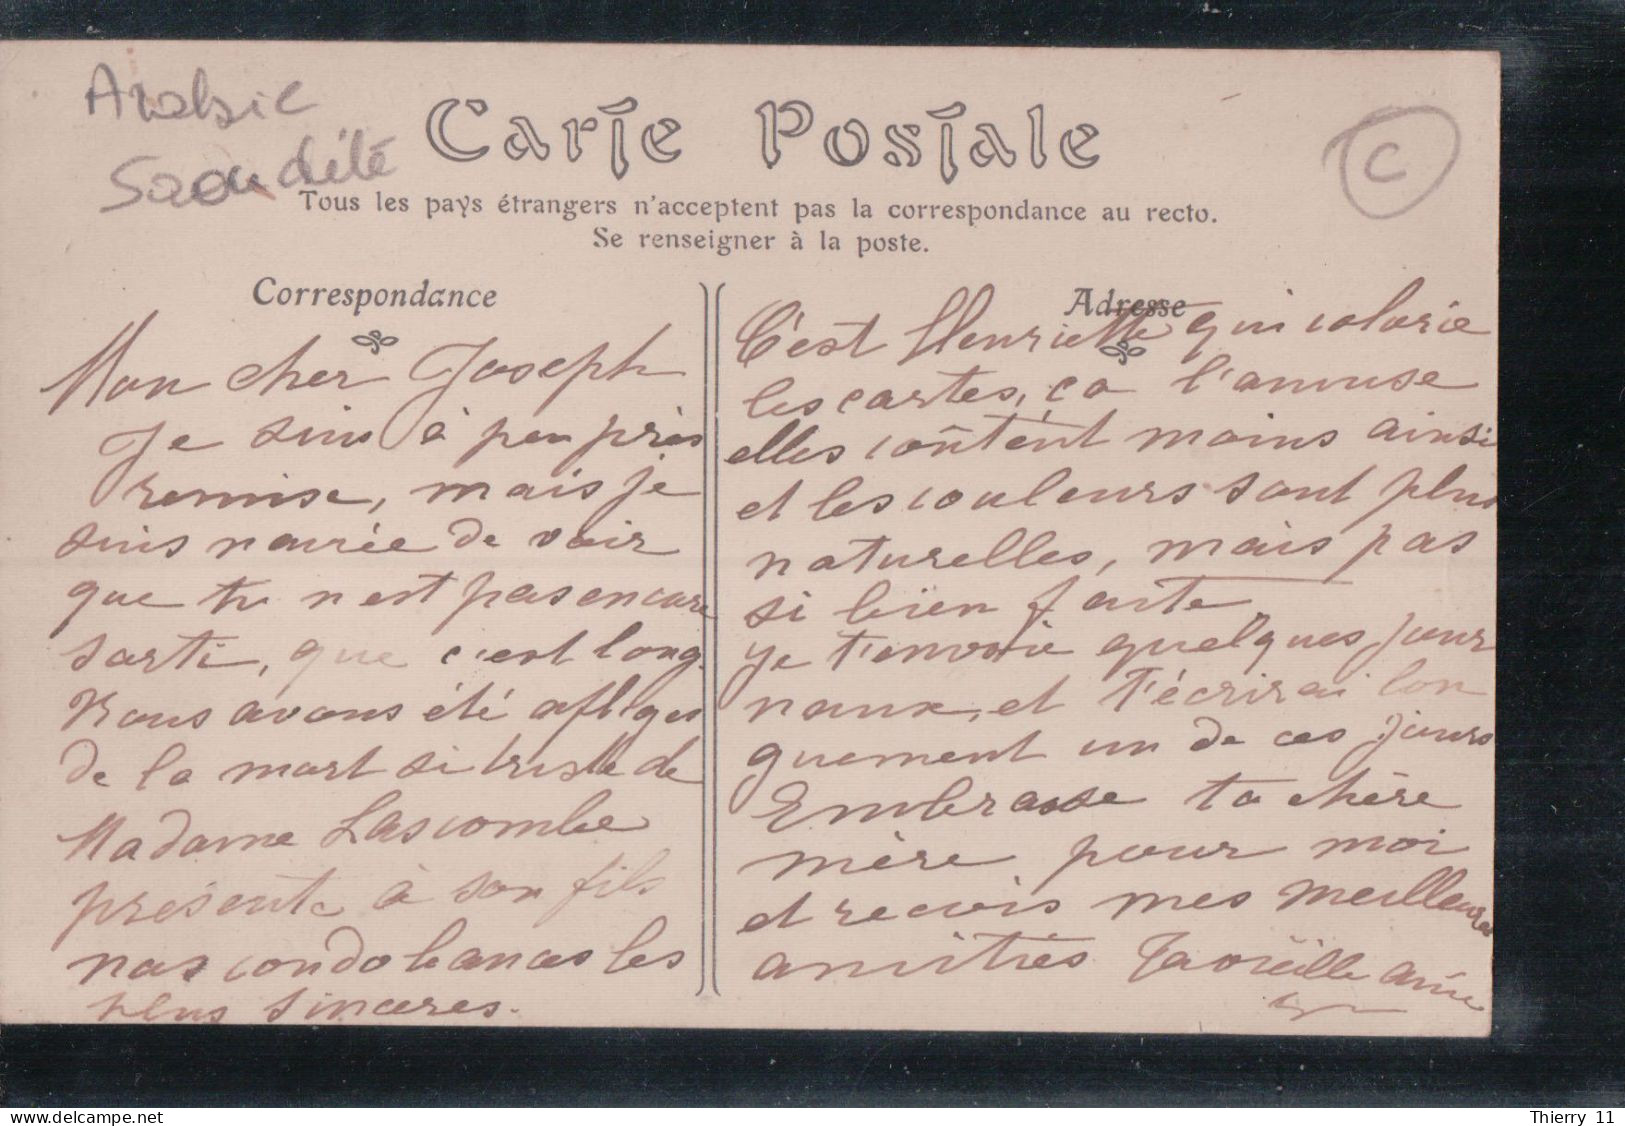 Arabie
Saoudité
C
Carte Postale
Tous les pays étrangers n'acceptent pas la correspondance au recto.
Se renseigner à la poste.
Correspondance
Mon cher Joseph
Je suis à peu près
remise, mais je
suis navrée de voir
que tu n'est pas encore
sorti, que c'est long.
Nous avons été afligés
de la mort si triste de
Madame Lascombe
présente à son fils
nos condoleances les
plus sincères.
Adresse
C'est Henriette qui colorie
les cartes, ça l'amuse
elles coûtent moins ainsi
et les couleurs sont plus
naturelles, mais pas
si bien faite
je t'envoie quelques jour
naux, et t'écrirai lon
guement un de ces jours
Embrasse ta chère
mère pour moi
et recois mes meilleures
amitiés Ta vieille amie
www.delcampe.net
Thierry 11